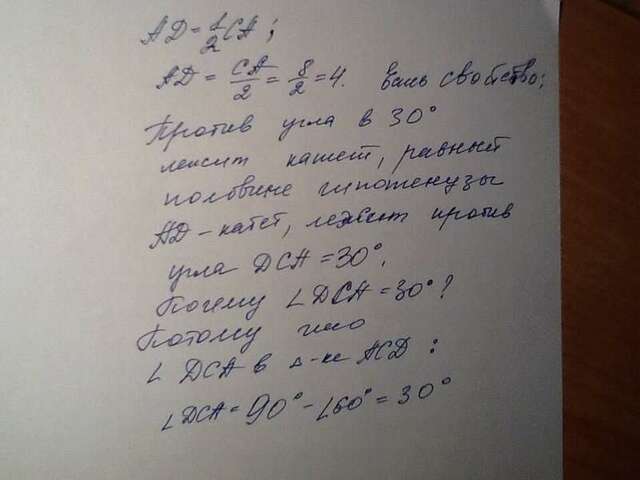 AD = 1/2 CA;
AD = CA/2 = 8/2 = 4. есть свойство:
Против угла в 30°
лежит катет, равный
половине гипотенузы
AD - катет, лежит против
угла DCA = 30°.
Почему ∠DCA = 30°?
Потому что
∠ DCA в △-ке ACD:
∠DCA = 90° - ∠60° = 30°